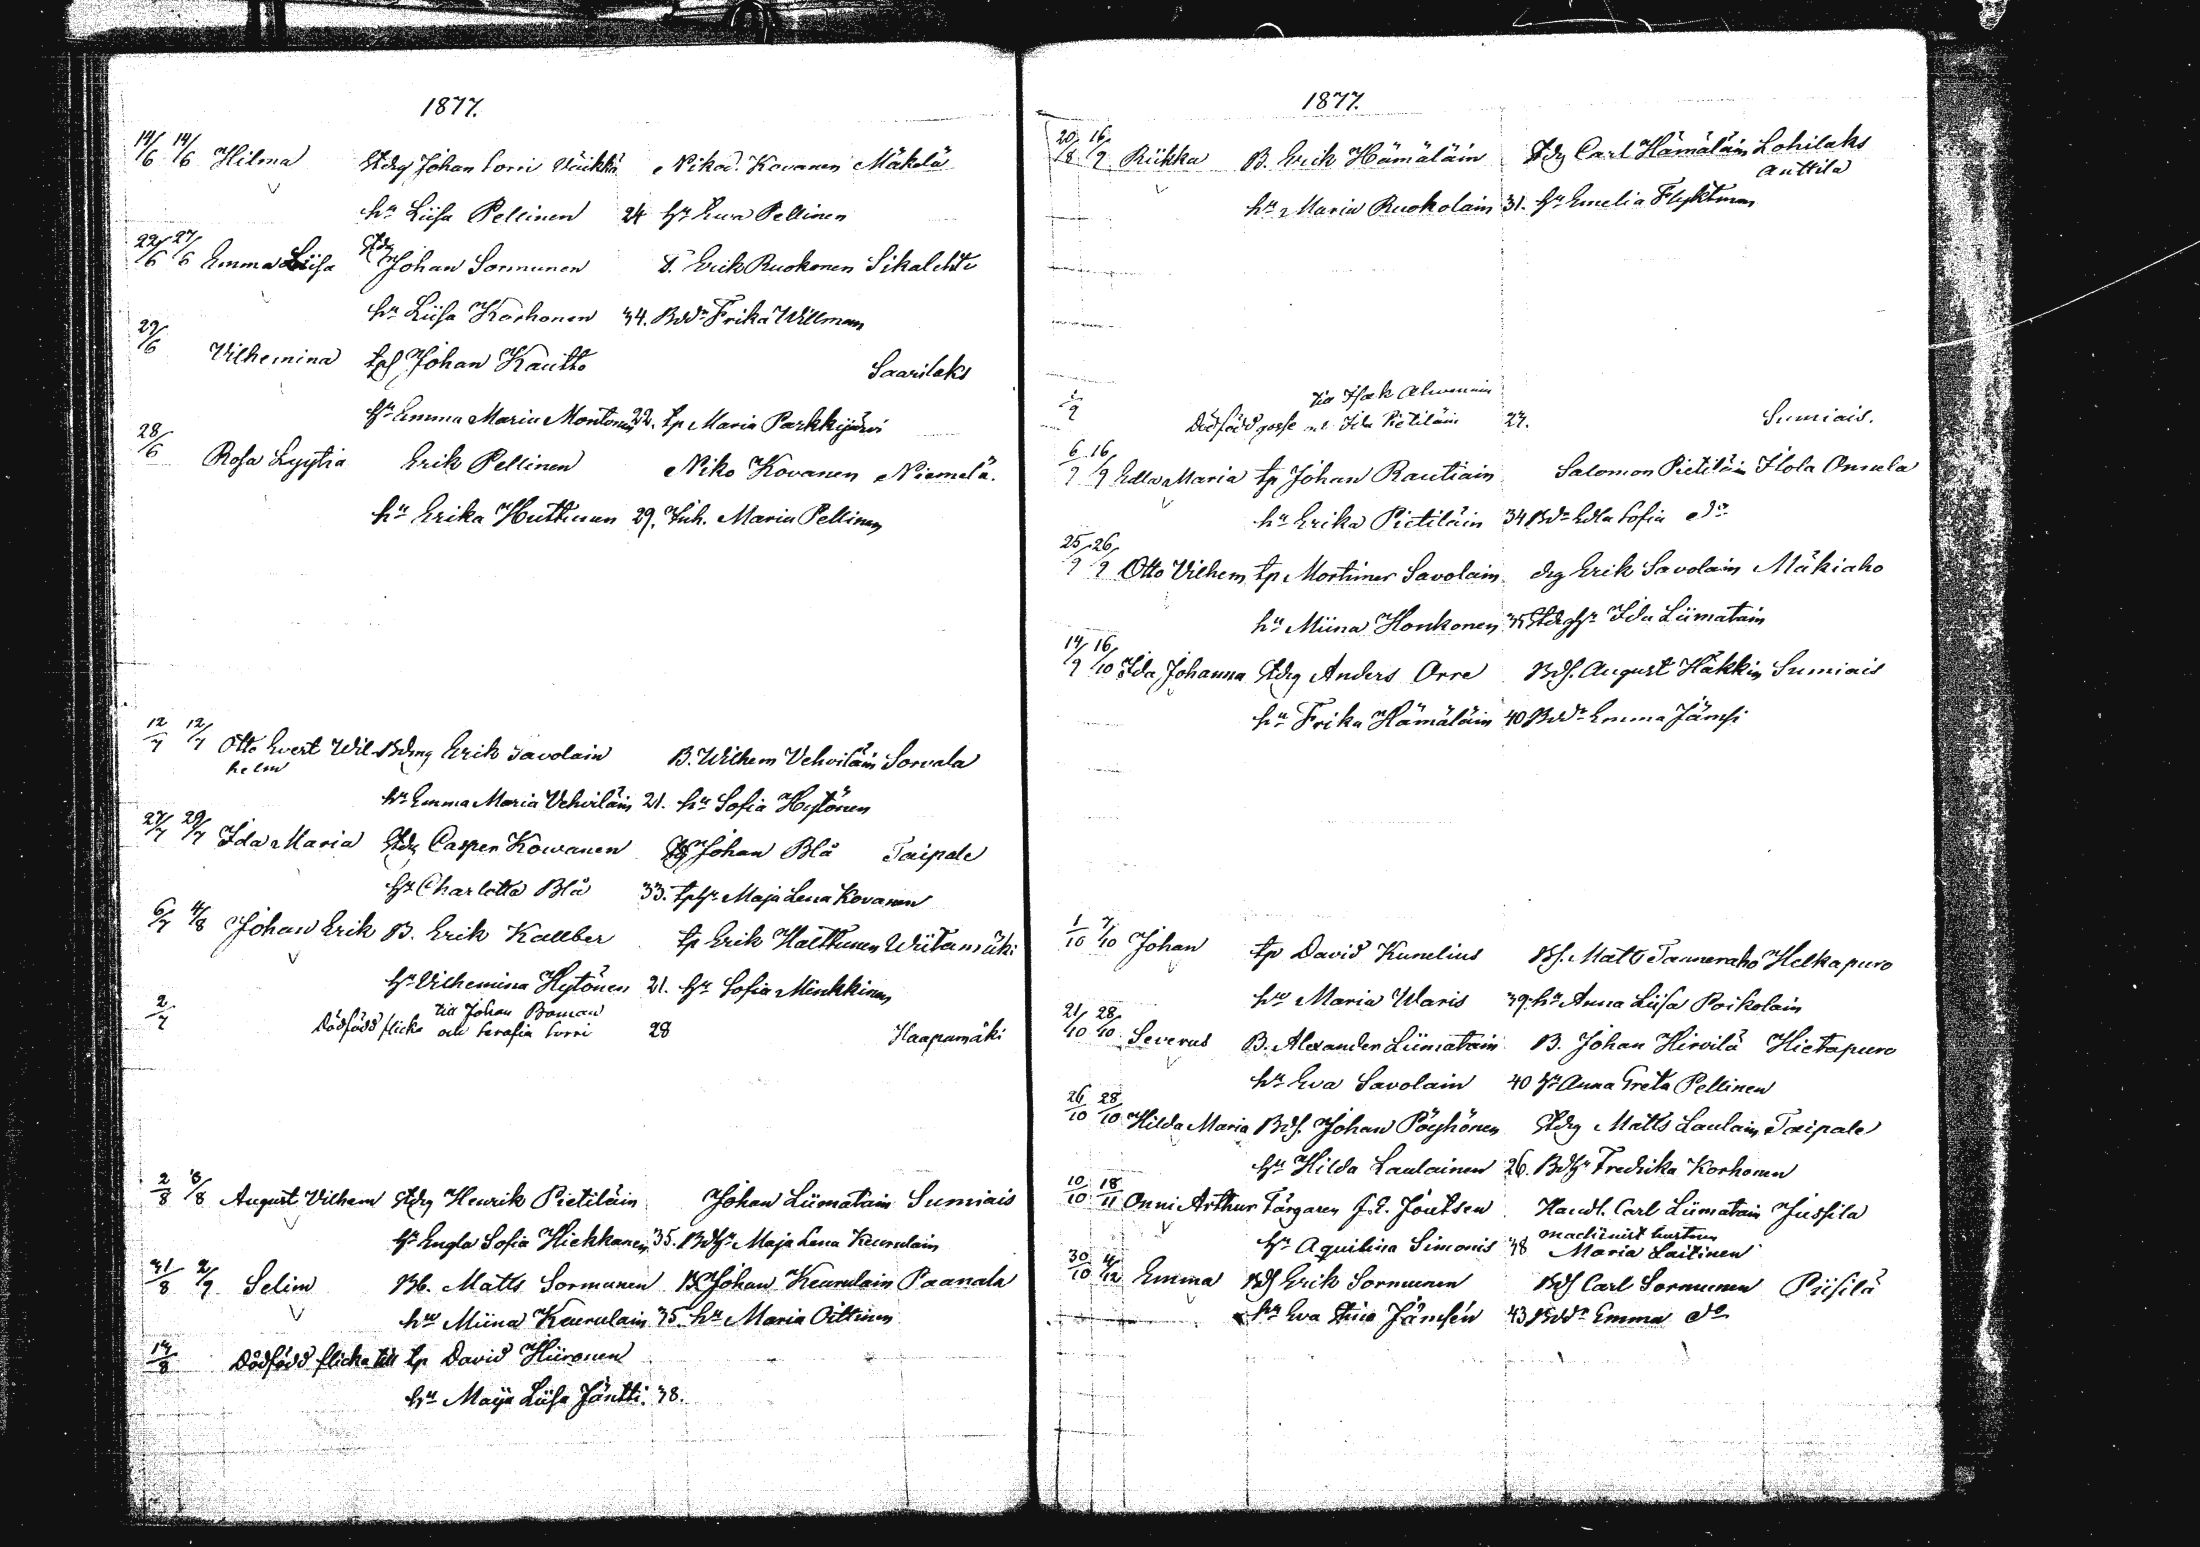 1877.
14/6 14/6 Hilma Stdrg Johan Sorri Väikkä Nikod. Kovanen Mäkelä
hu Liisa Pellinen 24 hu Ewa Pellinen
22/6 27/6 Emma Liisa Stdrg Johan Sormunen T. Erik Ruokonen Sikalehto
hu Liisa Korhonen 34. Bdd. Frika Willman
29/6 Vilhemina tps Johan Kautto Saarilaks
hu Emma Maria Montonen 22. tp Maria Parkkijärvi
28/6 Rosa Lyytia Erik Pellinen Niko Kovanen Niemelä.
hu Erika Huttunen 29. Inh. Maria Pellinen
12/7 12/7 Otto Evert Wil- Bdmg Erik Savolain B. Wilhem Vehviläin Sorvala
helm
hu Emma Maria Vehviläin 21. hu Sofia Hytönen
27/7 29/7 Ida Maria Stdg Casper Kowanen Johan Blå Taipale
hu Charlotta Blå 33. tphu Maja Lena Kovanen
6/7 4/8 Johan Erik B. Erik Kallber tp Erik Halttunen Wiitamäki
hu Vilhemina Hytönen 21. hu Sofia Minkkinen
2/7 Dödfödd flicka till Johan Boman
och Serafia Sorri 28 Haapamäki
2/8 8/8 August Vilhem Stdrg Henrik Pietiläin Johan Liimatain Sumiais
hu Engla Sofia Hiekkanen 35. Bdhu Maja Lena Keurulain
31/8 2/9 Selim Bb. Matts Sormunen B. Johan Keurulain Paanala
hu Miina Keurulain 35. hu Maria Oittinen
14/8 Dödfödd flicka till tp David Hiironen
hu Maija Liisa Jäntti 38.
1877.
20/8 16/9 Riikka B. Erik Hämäläin Stdg Carl Hämäläin Lohilaks
Anttila
hu Maria Ruokolain 31. hu Emelia Flyktman
1/9 till Isak Ahvenain
Dödfödd gosse o. Ida Pietiläin 27. Sumiais.
6/9 16/9 Edla Maria tp Johan Rautiain Salomon Pietiläin Ilola Onsula
hu Erika Pietiläin 34 Bd. Edla Sofia do
25/9 26/9 Otto Vilhem tp Mortimer Savolain drg Erik Savolain Mäkiaho
hu Miina Honkonen 35 Stdrghu Ida Liimatain
14/9 16/10 Ida Johanna Stdrg Anders Orre Bds. August Häkkin Sumiais
hu Frika Hämäläin 40 Bdd. Emma Jämsi
1/10 7/10 Johan tp David Kunelius Bs. Matts Tanneraho Helkapuro
hu Maria Waris 39. hu Anna Liisa Poikolain
21/10 28/10 Severus B. Alexander Liimatain B. Johan Hirvilä Hietapuro
hu Eva Savolain 40 hu Anna Greta Pellinen
26/10 28/10 Hilda Maria Bds. Johan Pöyhönen Stdrg Matts Laulain Taipale
hu Hilda Laulainen 26. Bdhu Fredrika Korhonen
10/10 18/11 Onni Arthur Färgaren J. E. Joutsen Handl. Carl Liimatain Jussila
machinist hustrun
hu Aquilina Simonis 38 Maria Laitinen
30/10 4/12 Emma Bds Erik Sormunen Bds Carl Sormunen Piisilä
hu Eva Stiina Jämsén 43 Bdd. Emma do